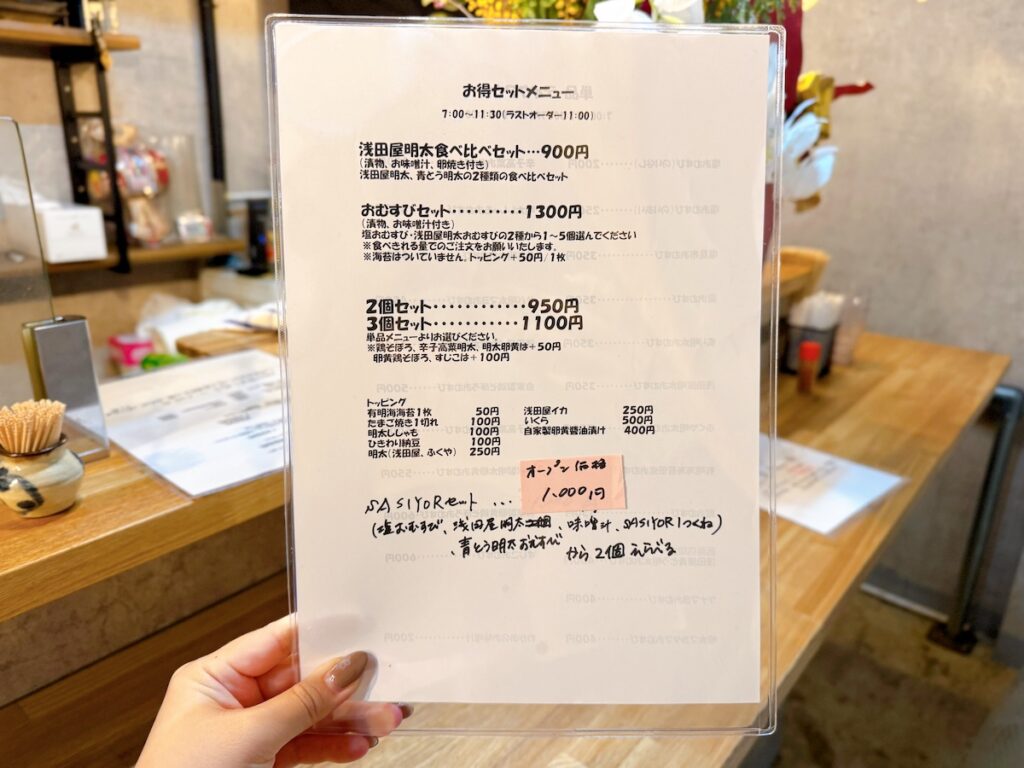 お得セットメニュー
7:00～11:30(ラストオーダー11:00)
浅田屋明太食べ比べセット…900円
(漬物、お味噌汁、卵焼き付き)
浅田屋明太、青とう明太の2種類の食べ比べセット
おむすびセット・・・・・・・・・・1300円
(漬物、お味噌汁付き)
塩おむすび・浅田屋明太おむすびの2種から1～5個選んでください
※食べきれる量でのご注文をお願いいたします。
※海苔はついていません。トッピング+50円/1枚
2個セット・・・・・・・・・・・・950円
3個セット・・・・・・・・・・・1100円
単品メニューよりお選びください。
※鶏そぼろ、辛子高菜明太、明太卵黄は+50円
卵黄鶏そぼろ、すじこは+100円
トッピング
有明海海苔1枚 50円
たまご焼き1切れ 100円
明太ししゃも 100円
ひきわり納豆 100円
明太(浅田屋、ふくや) 250円
浅田屋イカ 250円
いくら 500円
自家製卵黄醤油漬け 400円
オープン価格
1,000円
SASIYORセット ...
(塩おむすび、浅田屋明太 、味噌汁、SASIYORIつくね)
、青とう明太おむすび から2個えらべる